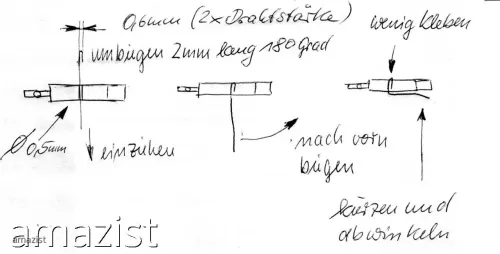 0,6mm (2xDrahtstärke)
umbiegen 2mm lang 180 Grad
wenig kleben
Ø 0,5mm
einziehen
nach vorn
biegen
kürzen und
abwinkeln
amazist
amazist